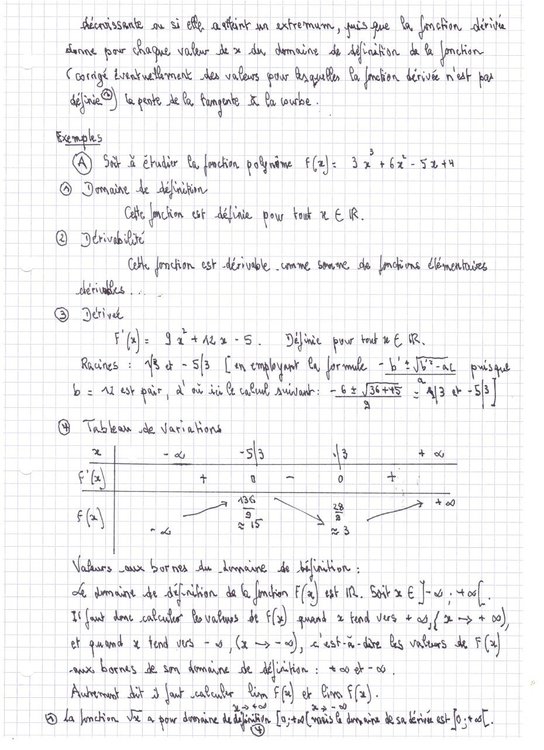 décroissante ou si elle atteint un extremum, puisque la fonction dérivée
donne pour chaque valeur de x du domaine de définition de la fonction
(corrigé éventuellement des valeurs pour lesquelles la fonction dérivée n'est pas
définie) la pente de la tangente à la courbe.
Exemples
Ⓐ Soit à étudier la fonction polynôme f(x) = 3x³ + 6x² - 5x + 4
① Domaine de définition
Cette fonction est définie pour tout x ∈ ℝ.
② Dérivabilité
Cette fonction est dérivable comme somme de fonctions élémentaires
dérivables...
③ Dérivée
F'(x) = 9x² + 12x - 5. Définie pour tout x ∈ ℝ.
Racines : 1/3 et -5/3 [en employant la formule (-b' ± √(b'² - ac))/a puisque
b = 12 est pair, d'où ici le calcul suivant : (-6 ± √(36+45))/9 = 1/3 et -5/3]
④ Tableau de variations
x -∞ -5/3 1/3 +∞
F'(x) + 0 - 0 +
f(x) -∞ 136/9 ≈ 15 28/9 ≈ 3 +∞
Valeurs aux bornes du domaine de définition :
Le domaine de définition de la fonction F(x) est ℝ. Soit x ∈ ]-∞ ; +∞[.
Il faut donc calculer les valeurs de F(x) quand x tend vers +∞, (x → +∞),
et quand x tend vers -∞, (x → -∞), c'est-à-dire les valeurs de F(x)
aux bornes de son domaine de définition : +∞ et -∞.
Autrement dit il faut calculer lim F(x) et lim F(x).
x → +∞ x → -∞
La fonction √x a pour domaine de définition [0 ; +∞[ mais le domaine de sa dérivée est ]0 ; +∞[.
④